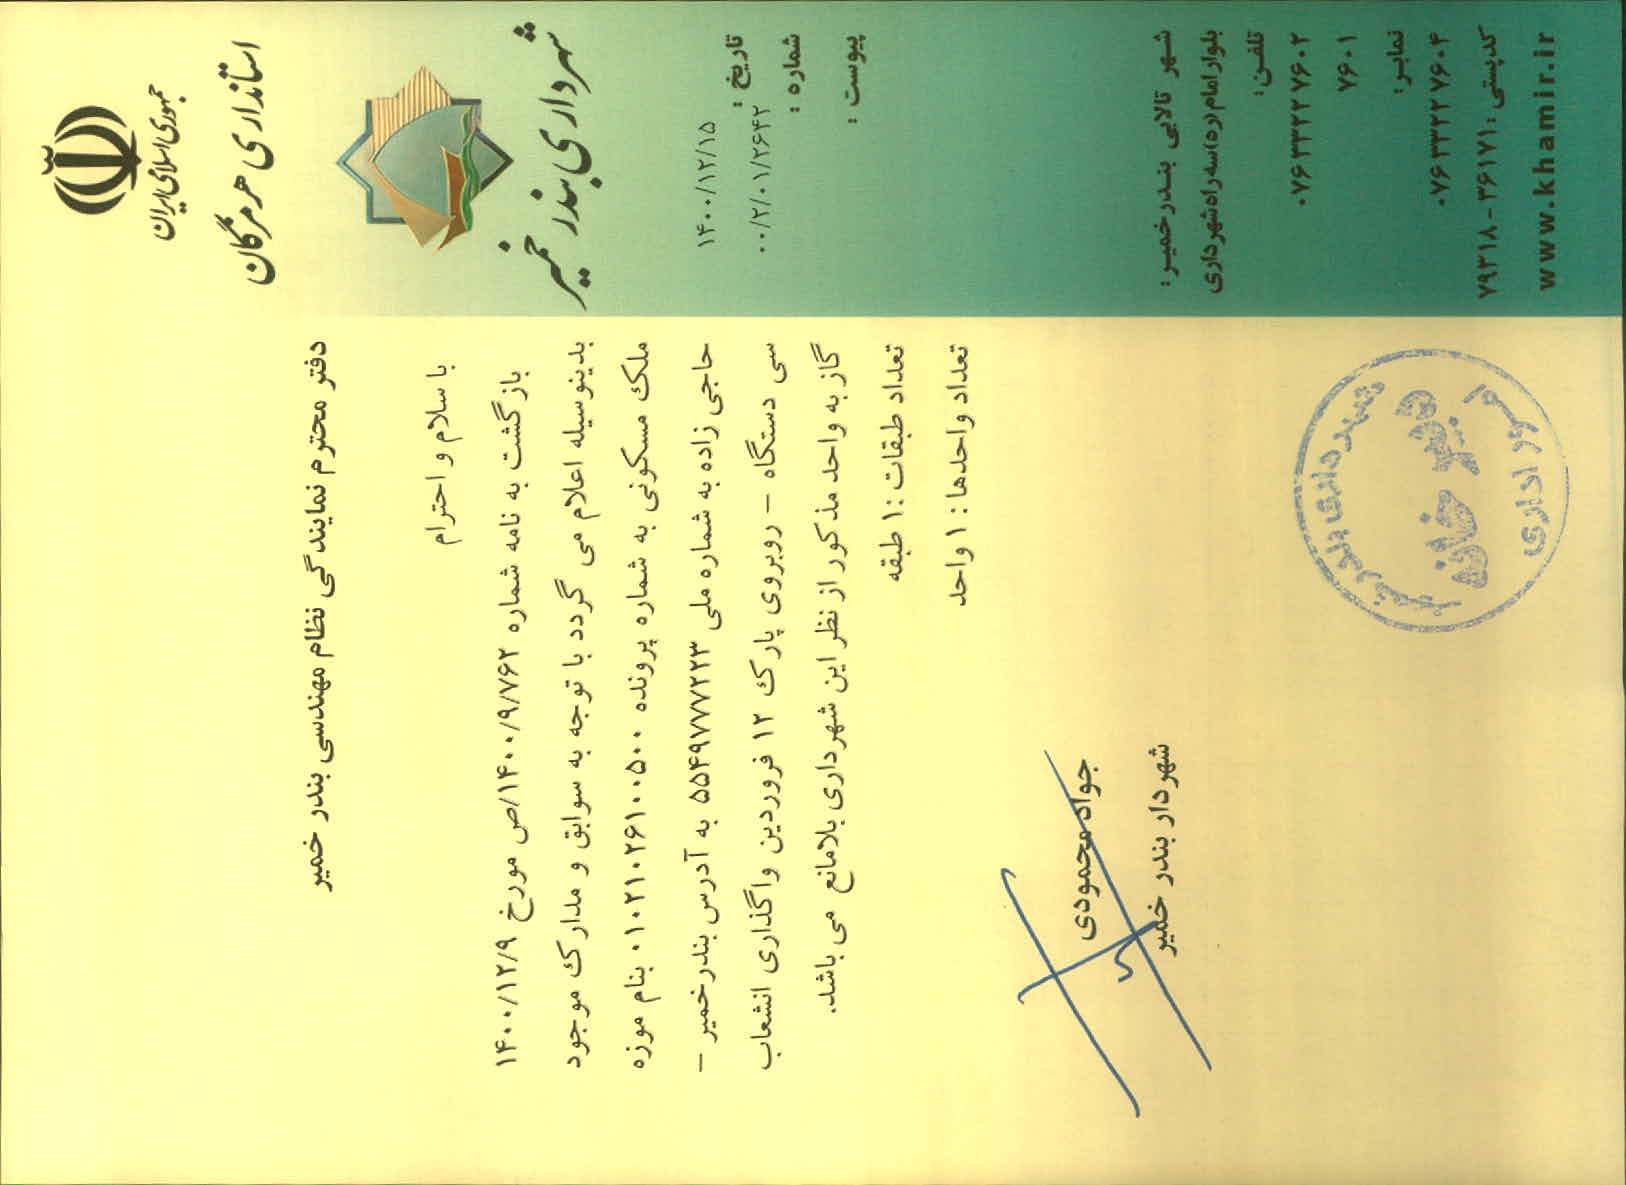 جمهوری اسلامی ایران
استانداری هرمزگان
شهرداری بندر خمیر
تاریخ :
۱۴۰۰/۱۲/۱۵
شماره :
۰۰/۲/۰۱/۲۶۴۲
پیوست :
دفتر محترم نمایندگی نظام مهندسی بندر خمیر
با سلام و احترام
بازگشت به نامه شماره ۱۴۰۰/۹/۷۶۲/ص مورخ ۱۴۰۰/۱۲/۹
بدینوسیله اعلام می گردد با توجه به سوابق و مدارک موجود
ملک مسکونی به شماره پرونده ۰۱۰۲۱۰۲۶۱۰۰۵۰۰ بنام موزه
حاجی زاده به شماره ملی ۵۵۴۹۷۷۷۲۲۳ به آدرس بندرخمیر –
سی دستگاه – روبروی پارک ۱۲ فروردین واگذاری انشعاب
گاز به واحد مذکور از نظر این شهرداری بلامانع می باشد.
تعداد طبقات :۱ طبقه
تعداد واحدها : ۱ واحد
جواد محمودی
شهردار بندر خمیر
شهرداری بندر خمیر
دبیرخانه
امور اداری
شهر تالابی بندرخمیر:
بلوار امام(ره)سه راه شهرداری
تلفن:
۰۷۶۳۳۲۲۷۶۰۲
۷۶۰۱
نمابر:
۰۷۶۳۳۲۲۷۶۰۴
کدپستی: ۳۶۱۷۱-۷۹۳۱۸
www.khamir.ir